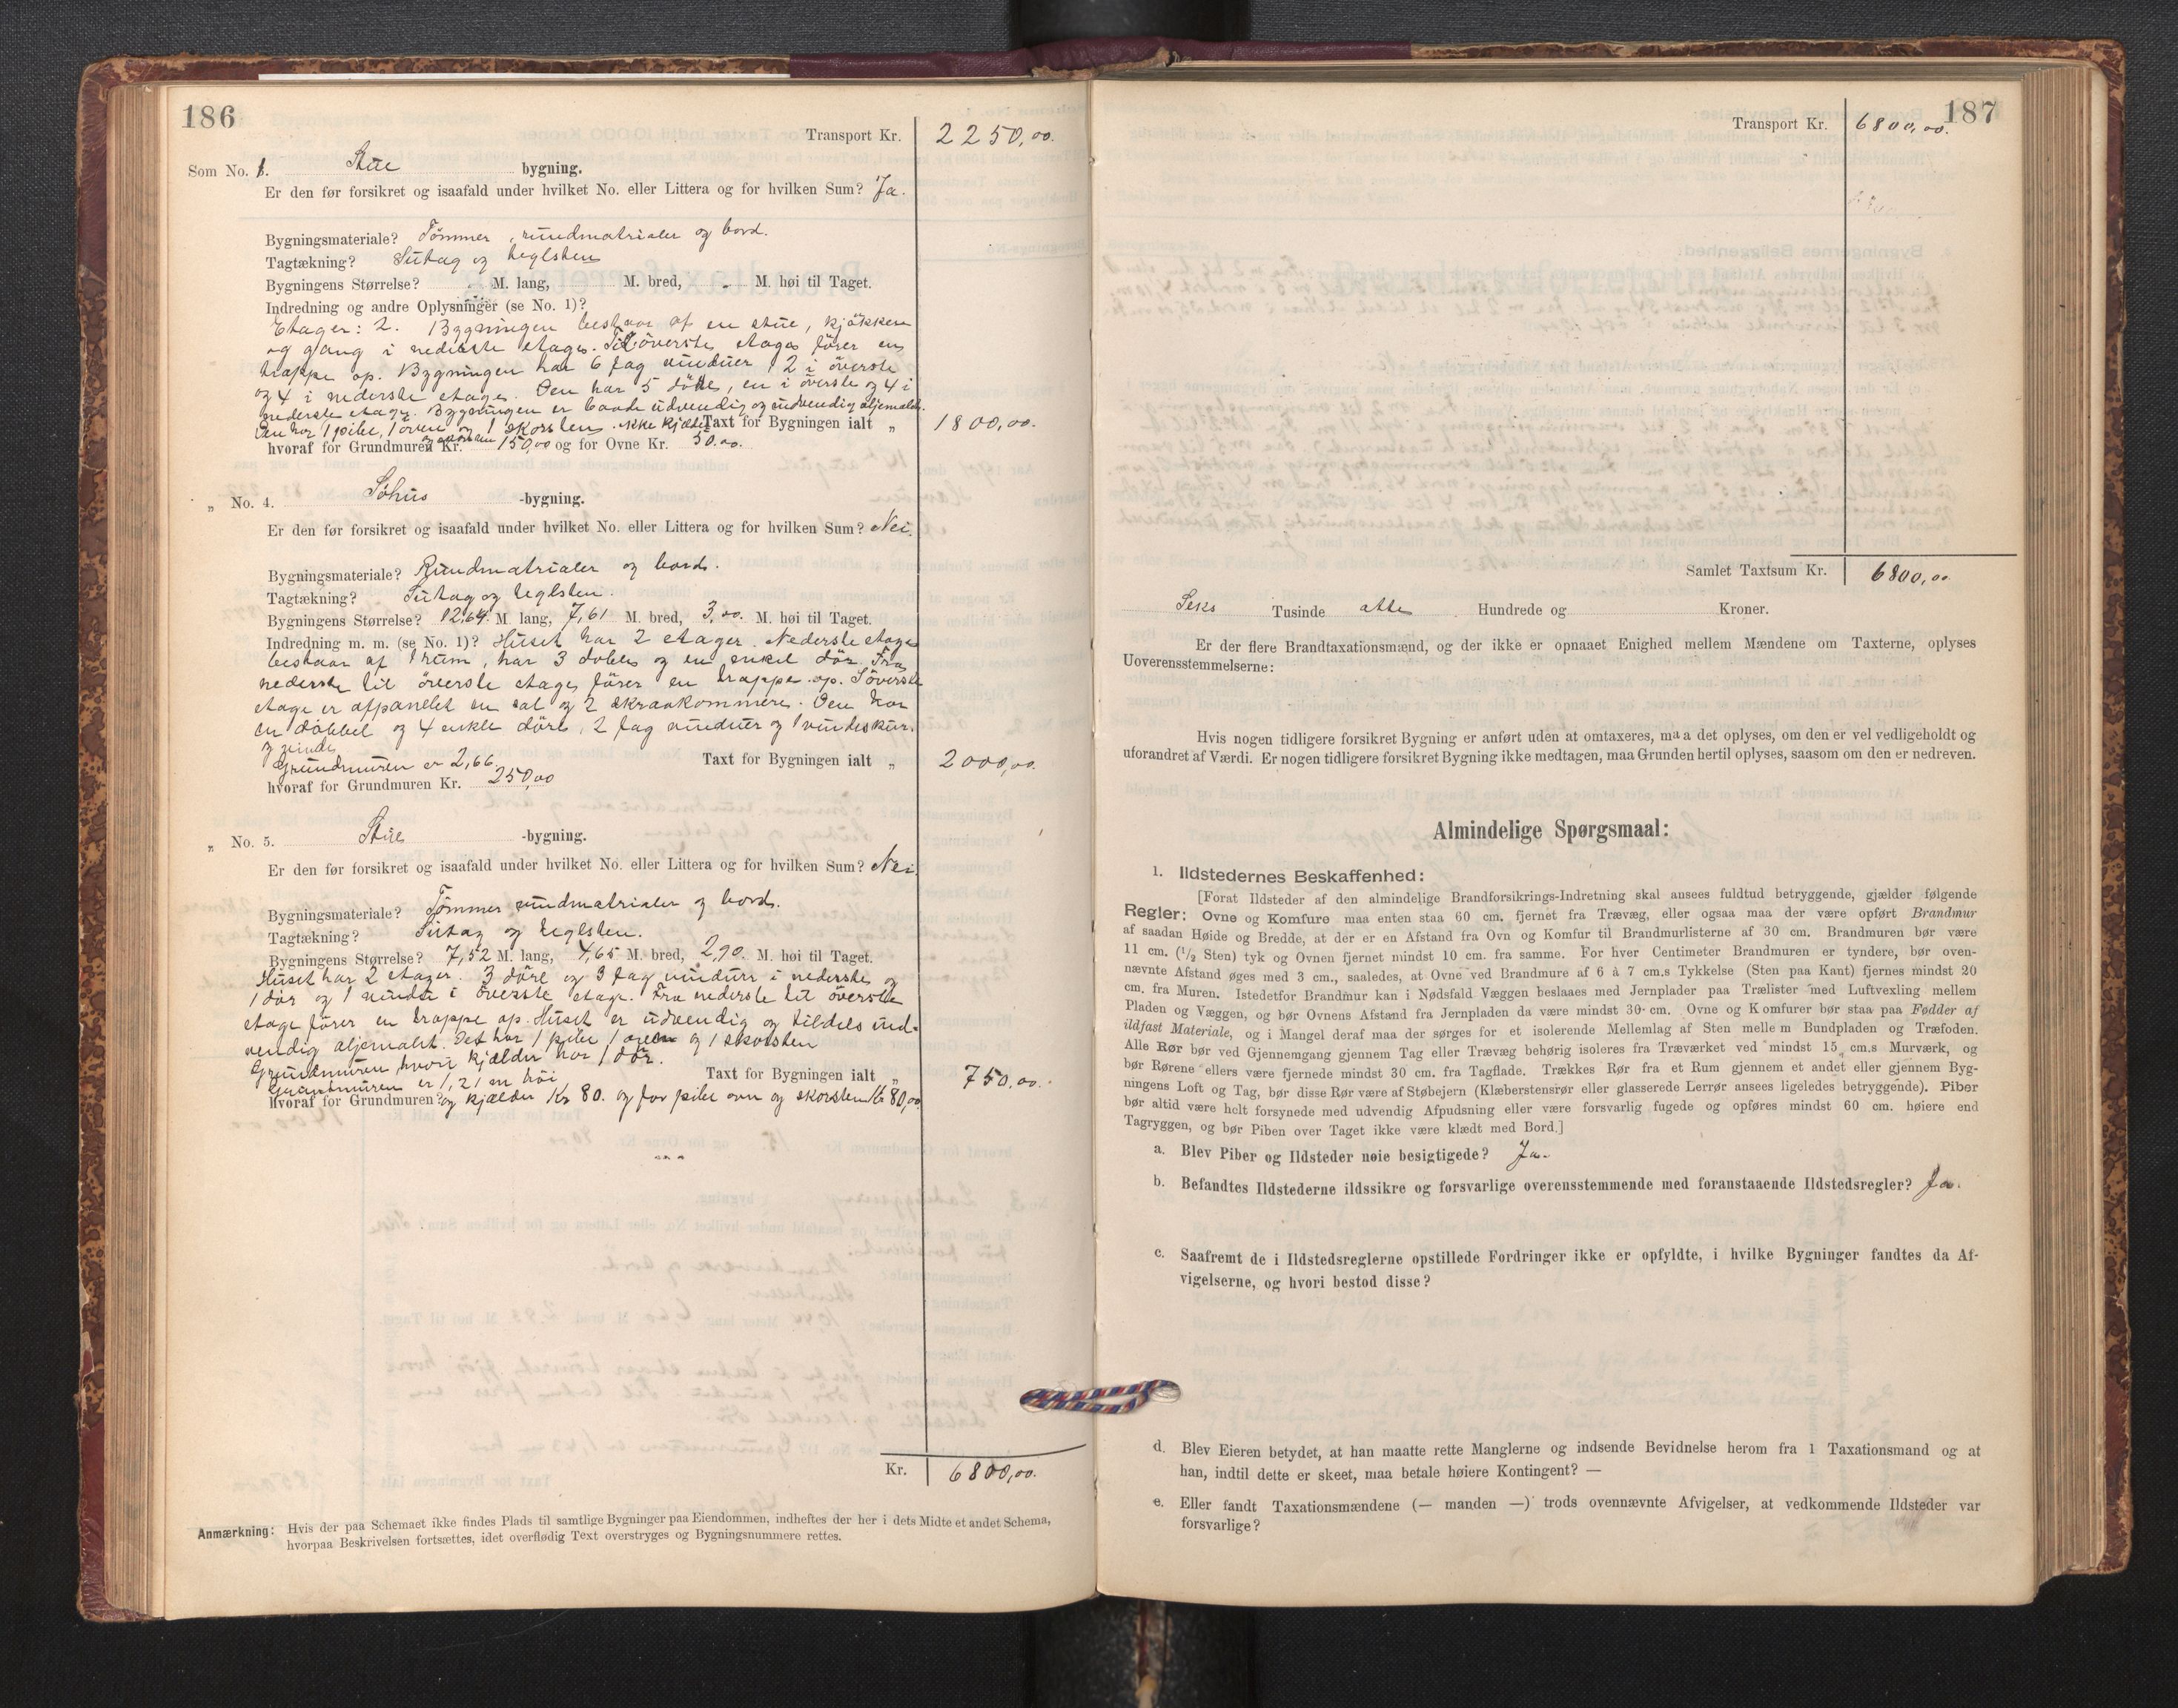 186
Transport Kr. 2250,00.
Som No. 1. Stue bygning.
Er den før forsikret og isaafald under hvilket No. eller Littera og for hvilken Sum? Ja.
Bygningsmateriale? Tömmer, rundmatrialer og bord.
Tagtækning? Sutag og teglsten
Bygningens Størrelse? M. lang, M. bred, M. høi til Taget.
Indredning og andre Oplysninger (se No. 1)?
Etager: 2. Bygningen bestaar af en stue, kjökken
og gang i nederste etage. Til överste etage förer en
trappe op. Bygningen har 6 fag vinduer 2 i överste
og 4 i nederste etage. Den har 5 döre, en i överste og 4 i
nederste etage. Bygningen er baade udvendig og indvendig oljemalt.
Den har 1 pibe, 1 oven og 1 skorsten. ikke kjælder Taxt for Bygningen ialt „ 1800,00.
hvoraf for Grundmuren og skorsten Kr. 150,00 og for Ovne Kr. 50.00.
„ No. 4. Söhus -bygning.
Er den før forsikret og isaafald under hvilket No. eller Littera og for hvilken Sum? Nei.
Bygningsmateriale? Rundmatrialer og bord.
Tagtækning? Sutag og teglsten.
Bygningens Størrelse? 12,64. M. lang, 7,61 M. bred, 3,00. M. høi til Taget.
Indredning m. m. (se No. 1)? Huset har 2 etager. Nederste etage
bestaar af 1 rum, har 3 doble og en enkel dör. Fra
nederste til överste etage förer en trappe op. I överste
etage er afpanelet en sal og 2 skraakommere. Den har
en dobbel og 4 enkle döre, 2 fag vinduer og 1 vindeskur.
og vinde
Grundmuren er 2,66. Taxt for Bygningen ialt „ 2000,00.
hvoraf for Grundmuren Kr. 250,00
„ No. 5. Stue -bygning.
Er den før forsikret og isaafald under hvilket No. eller Littera og for hvilken Sum? Nei.
Bygningsmateriale? Tömmer rundmatrialer og bord.
Tagtækning? Sutag og teglsten.
Bygningens Størrelse? 7,52 M. lang, 4,65 M. bred, 2,90. M. høi til Taget.
Huset har 2 etager. 3 döre og 3 fag vinduer i nederste og
1 dör og 1 vindu i överste etage. Fra nederste til överste
etage förer en trappe op. Huset er udvendig og tildels ind-
vendig oljemalt. Det har 1 pibe 1 oven og 1 skorsten
Grundmuren, hvori kjælder har 1 dör.
Grundmuren er 1,21 m höi Taxt for Bygningen ialt „ 750,00.
hvoraf for Grundmuren og kjælder Kr 80. og for pibe ovn og skorsten Kr 80,00
Kr. 6800,00.
Anmærkning: Hvis der paa Schemaet ikke findes Plads til samtlige Bygninger paa Eiendommen, indheftes der her i dets Midte et andet Schema,
hvorpaa Beskrivelsen fortsættes, idet overflødig Text overstryges og Bygningsnummere rettes.
187
Transport Kr. 6800,00.
Samlet Taxtsum Kr. 6800,00
Seks Tusinde atte Hundrede og Kroner.
Er der flere Brandtaxationsmænd, og der ikke er opnaaet Enighed mellem Mændene om Taxterne, oplyses
Uoverensstemmelserne:
Hvis nogen tidligere forsikret Bygning er anført uden at omtaxeres, maa det oplyses, om den er vel vedligeholdt og
uforandret af Værdi. Er nogen tidligere forsikret Bygning ikke medtagen, maa Grunden hertil oplyses, saasom om den er nedreven.
Almindelige Spørgsmaal:
1. Ildstedernes Beskaffenhed:
[Forat Ildsteder af den almindelige Brandforsikrings-Indretning skal ansees fuldtud betryggende, gjælder følgende
Regler: Ovne og Komfure maa enten staa 60 cm. fjernet fra Trævæg, eller ogsaa maa der være opført Brandmur
af saadan Høide og Bredde, at der er en Afstand fra Ovn og Komfur til Brandmurlisterne af 30 cm. Brandmuren bør være
11 cm. (1/2 Sten) tyk og Ovnen fjernet mindst 10 cm. fra samme. For hver Centimeter Brandmuren er tyndere, bør oven-
nævnte Afstand øges med 3 cm., saaledes, at Ovne ved Brandmure af 6 à 7 cm.s Tykkelse (Sten paa Kant) fjernes mindst 20
cm. fra Muren. Istedetfor Brandmur kan i Nødsfald Væggen beslaaes med Jernplader paa Trælister med Luftvexling mellem
Pladen og Væggen, og bør Ovnens Afstand fra Jernpladen da være mindst 30 cm. Ovne og Komfurer bør staa paa Fødder af
ildfast Materiale, og i Mangel deraf maa der sørges for et isolerende Mellemlag af Sten mellem Bundpladen og Træfoden.
Alle Rør bør ved Gjennemgang gjennem Tag eller Trævæg behørig isoleres fra Træværket ved mindst 15 cm.s Murværk, og
bør Rørene ellers være fjernede mindst 30 cm. fra Tagflade. Trækkes Rør fra et Rum gjennem et andet eller gjennem Byg-
ningens Loft og Tag, bør disse Rør være af Støbejern (Klæberstensrør eller glasserede Lerrør ansees ligeledes betryggende). Piber
bør altid være helt forsynede med udvendig Afpudsning eller være forsvarlig fugede og opføres mindst 60 cm. høiere end
Tagryggen, og bør Piben over Taget ikke være klædt med Bord.]
a. Blev Piber og Ildsteder nøie besigtigede? Ja.
b. Befandtes Ildstederne ildssikre og forsvarlige overensstemmende med foranstaaende Ildstedsregler? Ja.
c. Saafremt de i Ildstedsreglerne opstillede Fordringer ikke er opfyldte, i hvilke Bygninger fandtes da Af-
vigelserne, og hvori bestod disse?
d. Blev Eieren betydet, at han maatte rette Manglerne og indsende Bevidnelse herom fra 1 Taxationsmand og at
han, indtil dette er skeet, maa betale høiere Kontingent? —
e. Eller fandt Taxationsmændene (— manden —) trods ovennævnte Afvigelser, at vedkommende Ildsteder var
forsvarlige?